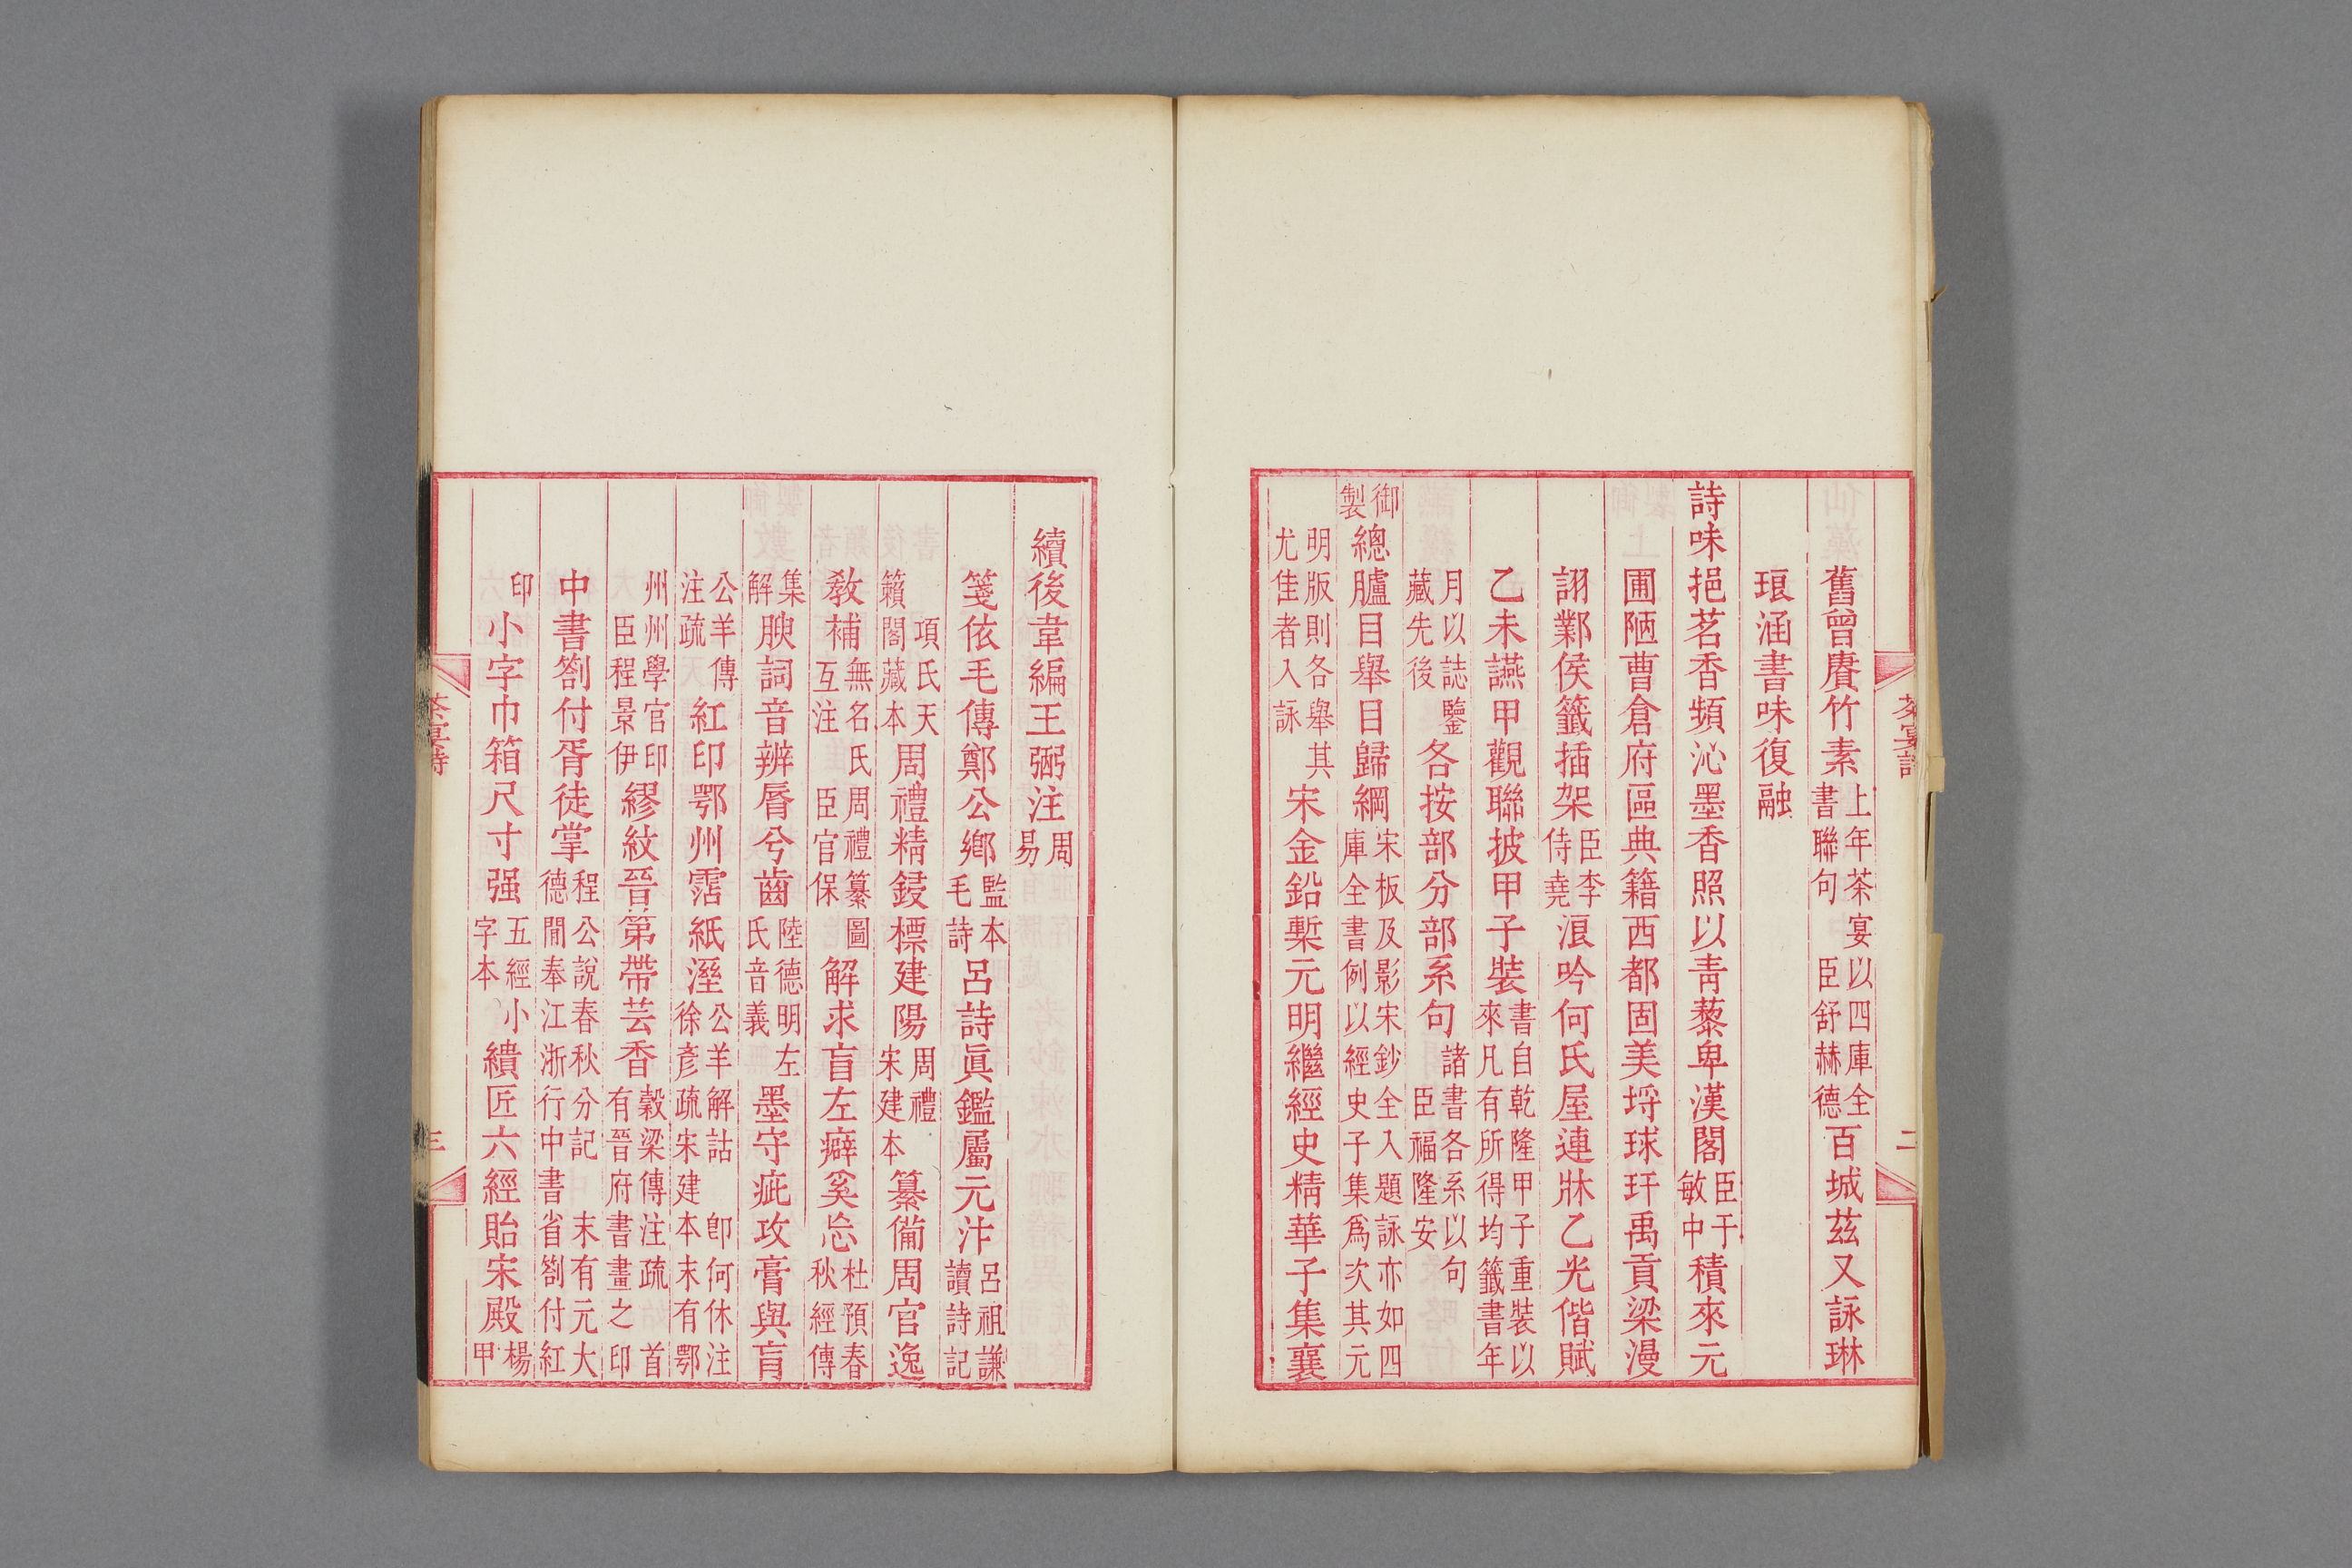 舊曾賡竹素上年茶宴以四庫全書聯句臣舒赫德百城茲又詠琳
琅涵書味復融
詩味挹茗香頻沁墨香照以靑藜卑漢閣臣于敏中積來元
圃陋曹倉府區典籍西都固美埒球玕禹貢梁漫
詡鄴侯籤插架臣李侍堯浪吟何氏屋連牀乙光偕賦
乙未讌甲觀聯披甲子裝書自乾隆甲子重裝以來凡有所得均籤書年
月以誌鑒藏先後各按部分部系句諸書各系以句臣福隆安
御製總臚目舉目歸綱宋板及影宋鈔全入題詠亦如四庫全書例以經史子集爲次其元
明版則各舉其尤佳者入詠宋金鉛槧元明繼經史精華子集襄
茶宴詩
二
續後韋編王弼注周易
箋依毛傳鄭公鄉監本毛詩呂詩眞鑑屬元汴呂祖謙讀詩記
項氏天籟閣藏本周禮精鋟標建陽周禮宋建本纂備周官逸
敎補無名氏周禮纂圖互注臣官保解求盲左癖奚忘杜預春秋經傳
集解腴詞音辨脣兮齒陸德明左氏音義墨守疵攻膏與肓
公羊傳注疏紅印鄂州霑紙溼公羊解詁卽何休注徐彥疏宋建本末有鄂
州州學官印臣程景伊繆紋晉第帶芸香穀梁傳注疏首有晉府書畫之印
中書劄付胥徒掌程公說春秋分記末有元大德閒奉江浙行中書省劄付紅
印小字巾箱尺寸强五經小字本繢匠六經貽宋殿楊甲
茶宴詩
三